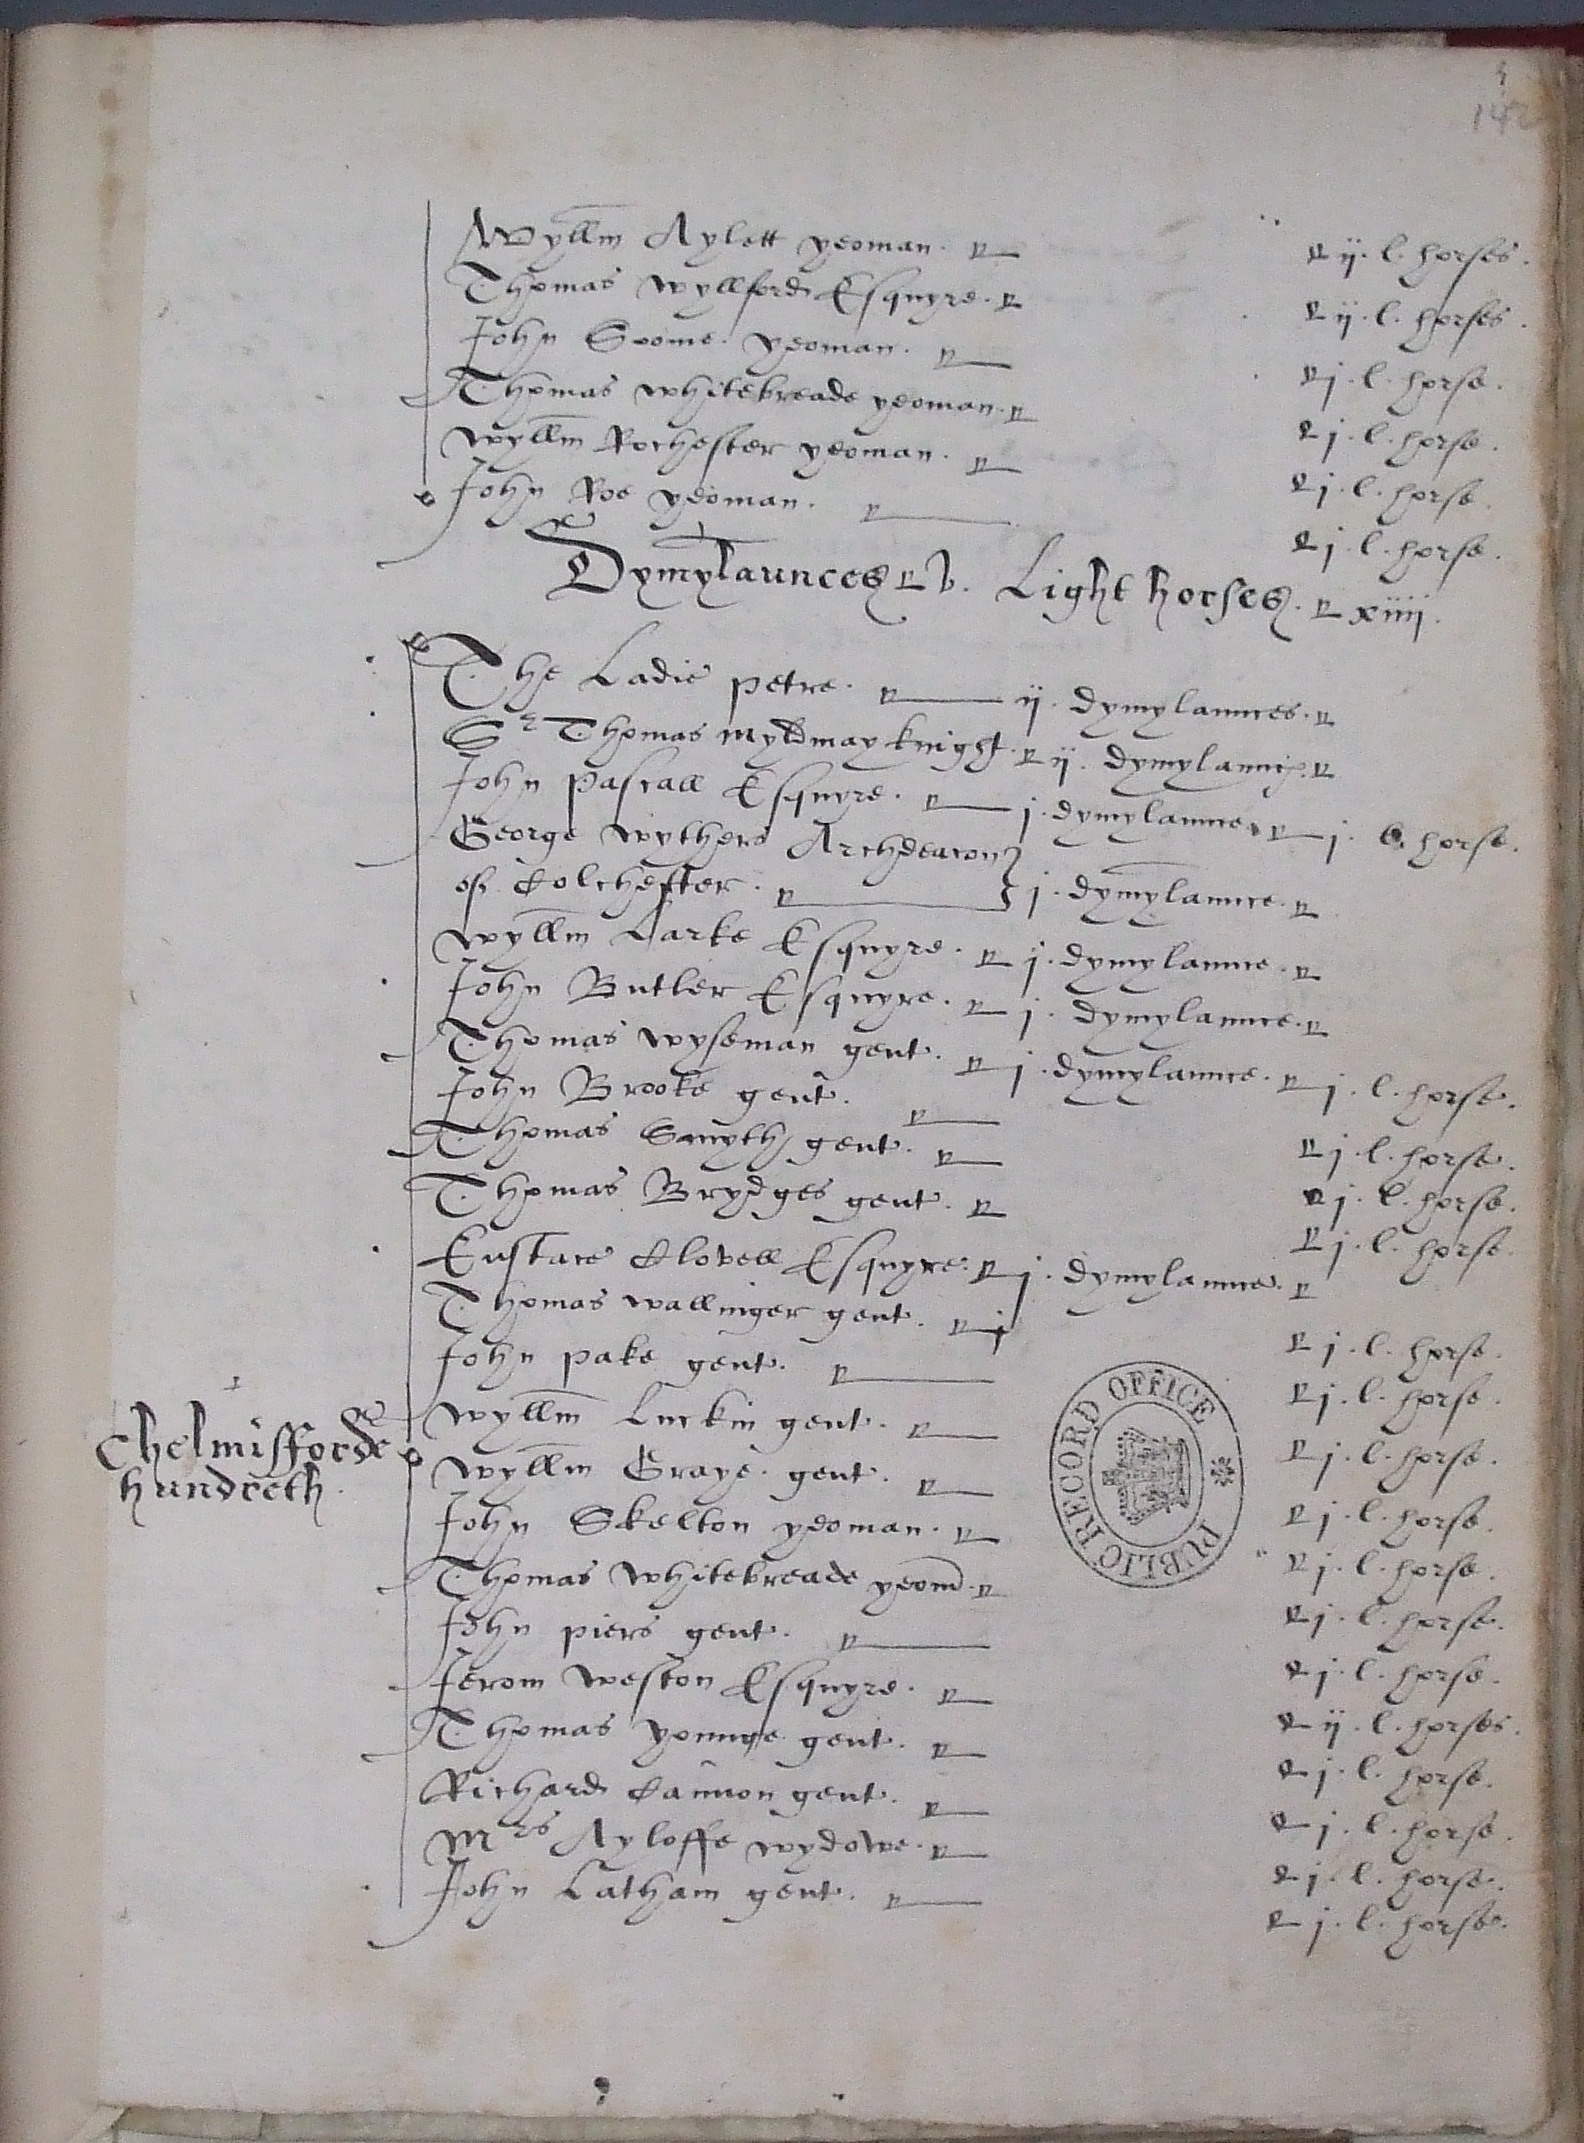 142
Wyllm Aylett yeoman. ij. l. horses.
Thomas Wyllford Esquyre. ij. l. horses.
John Soome. yeoman. j. l. horse.
Thomas Whitebreade yeoman. j. l. horse.
Wyllm Rochester yeoman. j. l. horse.
John Roe yeoman. j. l. horse.
Dymylaunces v. Light horses. xiiij.
The Ladie Petre. ij. dymylaunces.
Sr Thomas Myldmay knight. ij. dymylaunces.
John Pascall Esquyre. j. dymylaunce. j. l. horse.
George Wythers Archdeacon
of Colchester. j. dymylaunce.
Wyllm Larke Esquyre. j. dymylaunce.
John Butler Esquyre. j. dymylaunce.
Thomas Wyseman gent. j. dymylaunce. j. l. horse.
John Brooke gent. j. l. horse.
Thomas Smyth gent. j. l. horse.
Thomas Brydges gent. j. l. horse.
Eustace Clovell Esquyre. j. dymylaunce.
Thomas Wallinger gent. j. l. horse.
John Pake gent. j. l. horse.
Chelmisforde
hundreth.
Wyllm Luckin gent. j. l. horse.
Wyllm Graye. gent. j. l. horse.
John Skelton yeoman. j. l. horse.
Thomas Whitebreade yeom. j. l. horse.
John Piers gent. j. l. horse.
Jerom Weston Esquyre. ij. l. horses.
Thomas Younge gent. j. l. horse.
Richard Cannon gent. j. l. horse.
Mrs Ayloffe wydowe. j. l. horse.
John Latham gent. j. l. horse.
PUBLIC RECORD OFFICE